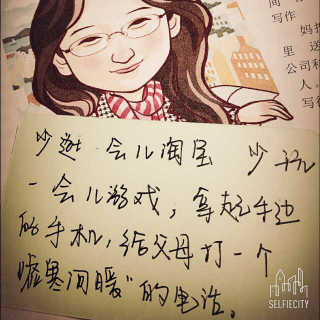 写作
妈
里 送
公司和
人。
写
少逛 会儿淘宝 少玩
一会儿游戏，拿起手边
的手机，给父母打一个
嘘寒问暖”的电话。
SELFIECITY